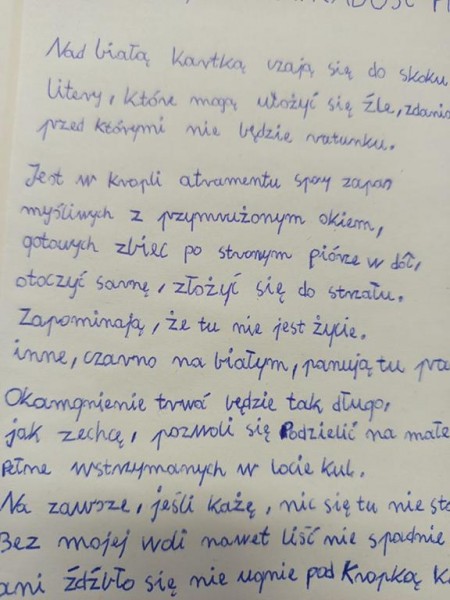 RADOŚĆ
Nad białą kartką czają się do skoku
litery, które mogą ułożyć się źle, zdania
przed którymi nie będzie ratunku.
Jest w kropli atramentu spory zapas
myśliwych z przymrużonym okiem,
gotowych zbiec po stromym piórze w dół,
otoczyć sarnę, złożyć się do strzału.
Zapominają, że tu nie jest życie.
inne, czarno na białym, panują tu pra
Okamgnienie trwać będzie tak długo,
jak zechcę, pozwoli się Podzielić na małe
Pełne wstrzymanych w locie kul.
Na zawsze, jeśli każę, nic się tu nie sta
Bez mojej woli nawet liść nie spadnie
ani źdźbło się nie ugnie pod kropką k